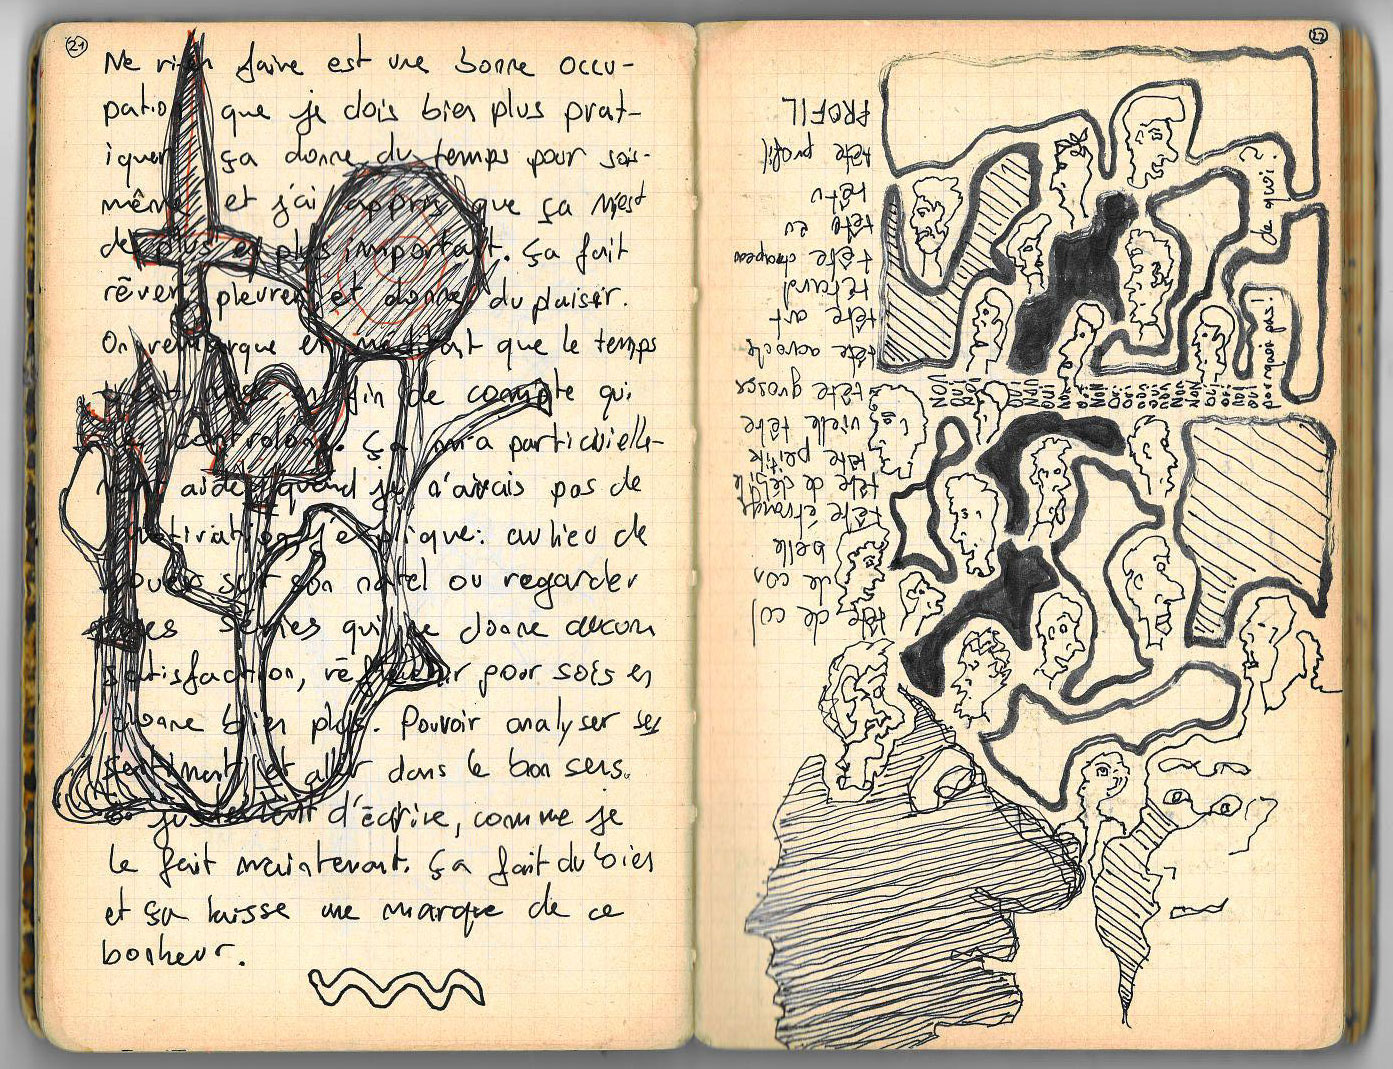 21
Ne rien faire est une bonne occu-
pation que je dois bien plus prat-
iquer ça donne du temps pour sois-
même et j'ai appris que ça n'est
de plus en plus important. ça fait
rêver, pleurer et donne du plaisir.
On remarque en méditant que le temps
fin de compte qui
contrôlons. ça m'a particulielle-
ment aider quand je n'avais pas de
motivation j'explique: au lieu de
jouer sur son natel ou regarder
des séries qui ne donne aucun
satisfaction, réfléchir pour sois en
donne bien plus. Pouvoir analyser ses
sentiment et aller dans le bon sens.
ou justement d'écrire, comme je
le fait maintenant. ça fait du bien
et ça laisse une marque de ce
bonheur.
22
PROFIL
tête profil
têtu
tête eu
tête chapeau
têtard
tête art
tête accroche
tête grosse
vielle tête
tête petite
tête de débile
tête étrange
belle
de con
tête de col
de quoi?
pourquoi pas!
NON
OUI
OUI
OUI
NON
NON
OUI
OUI
non
oui
non
NON
NON
OUI
oui
non
oui